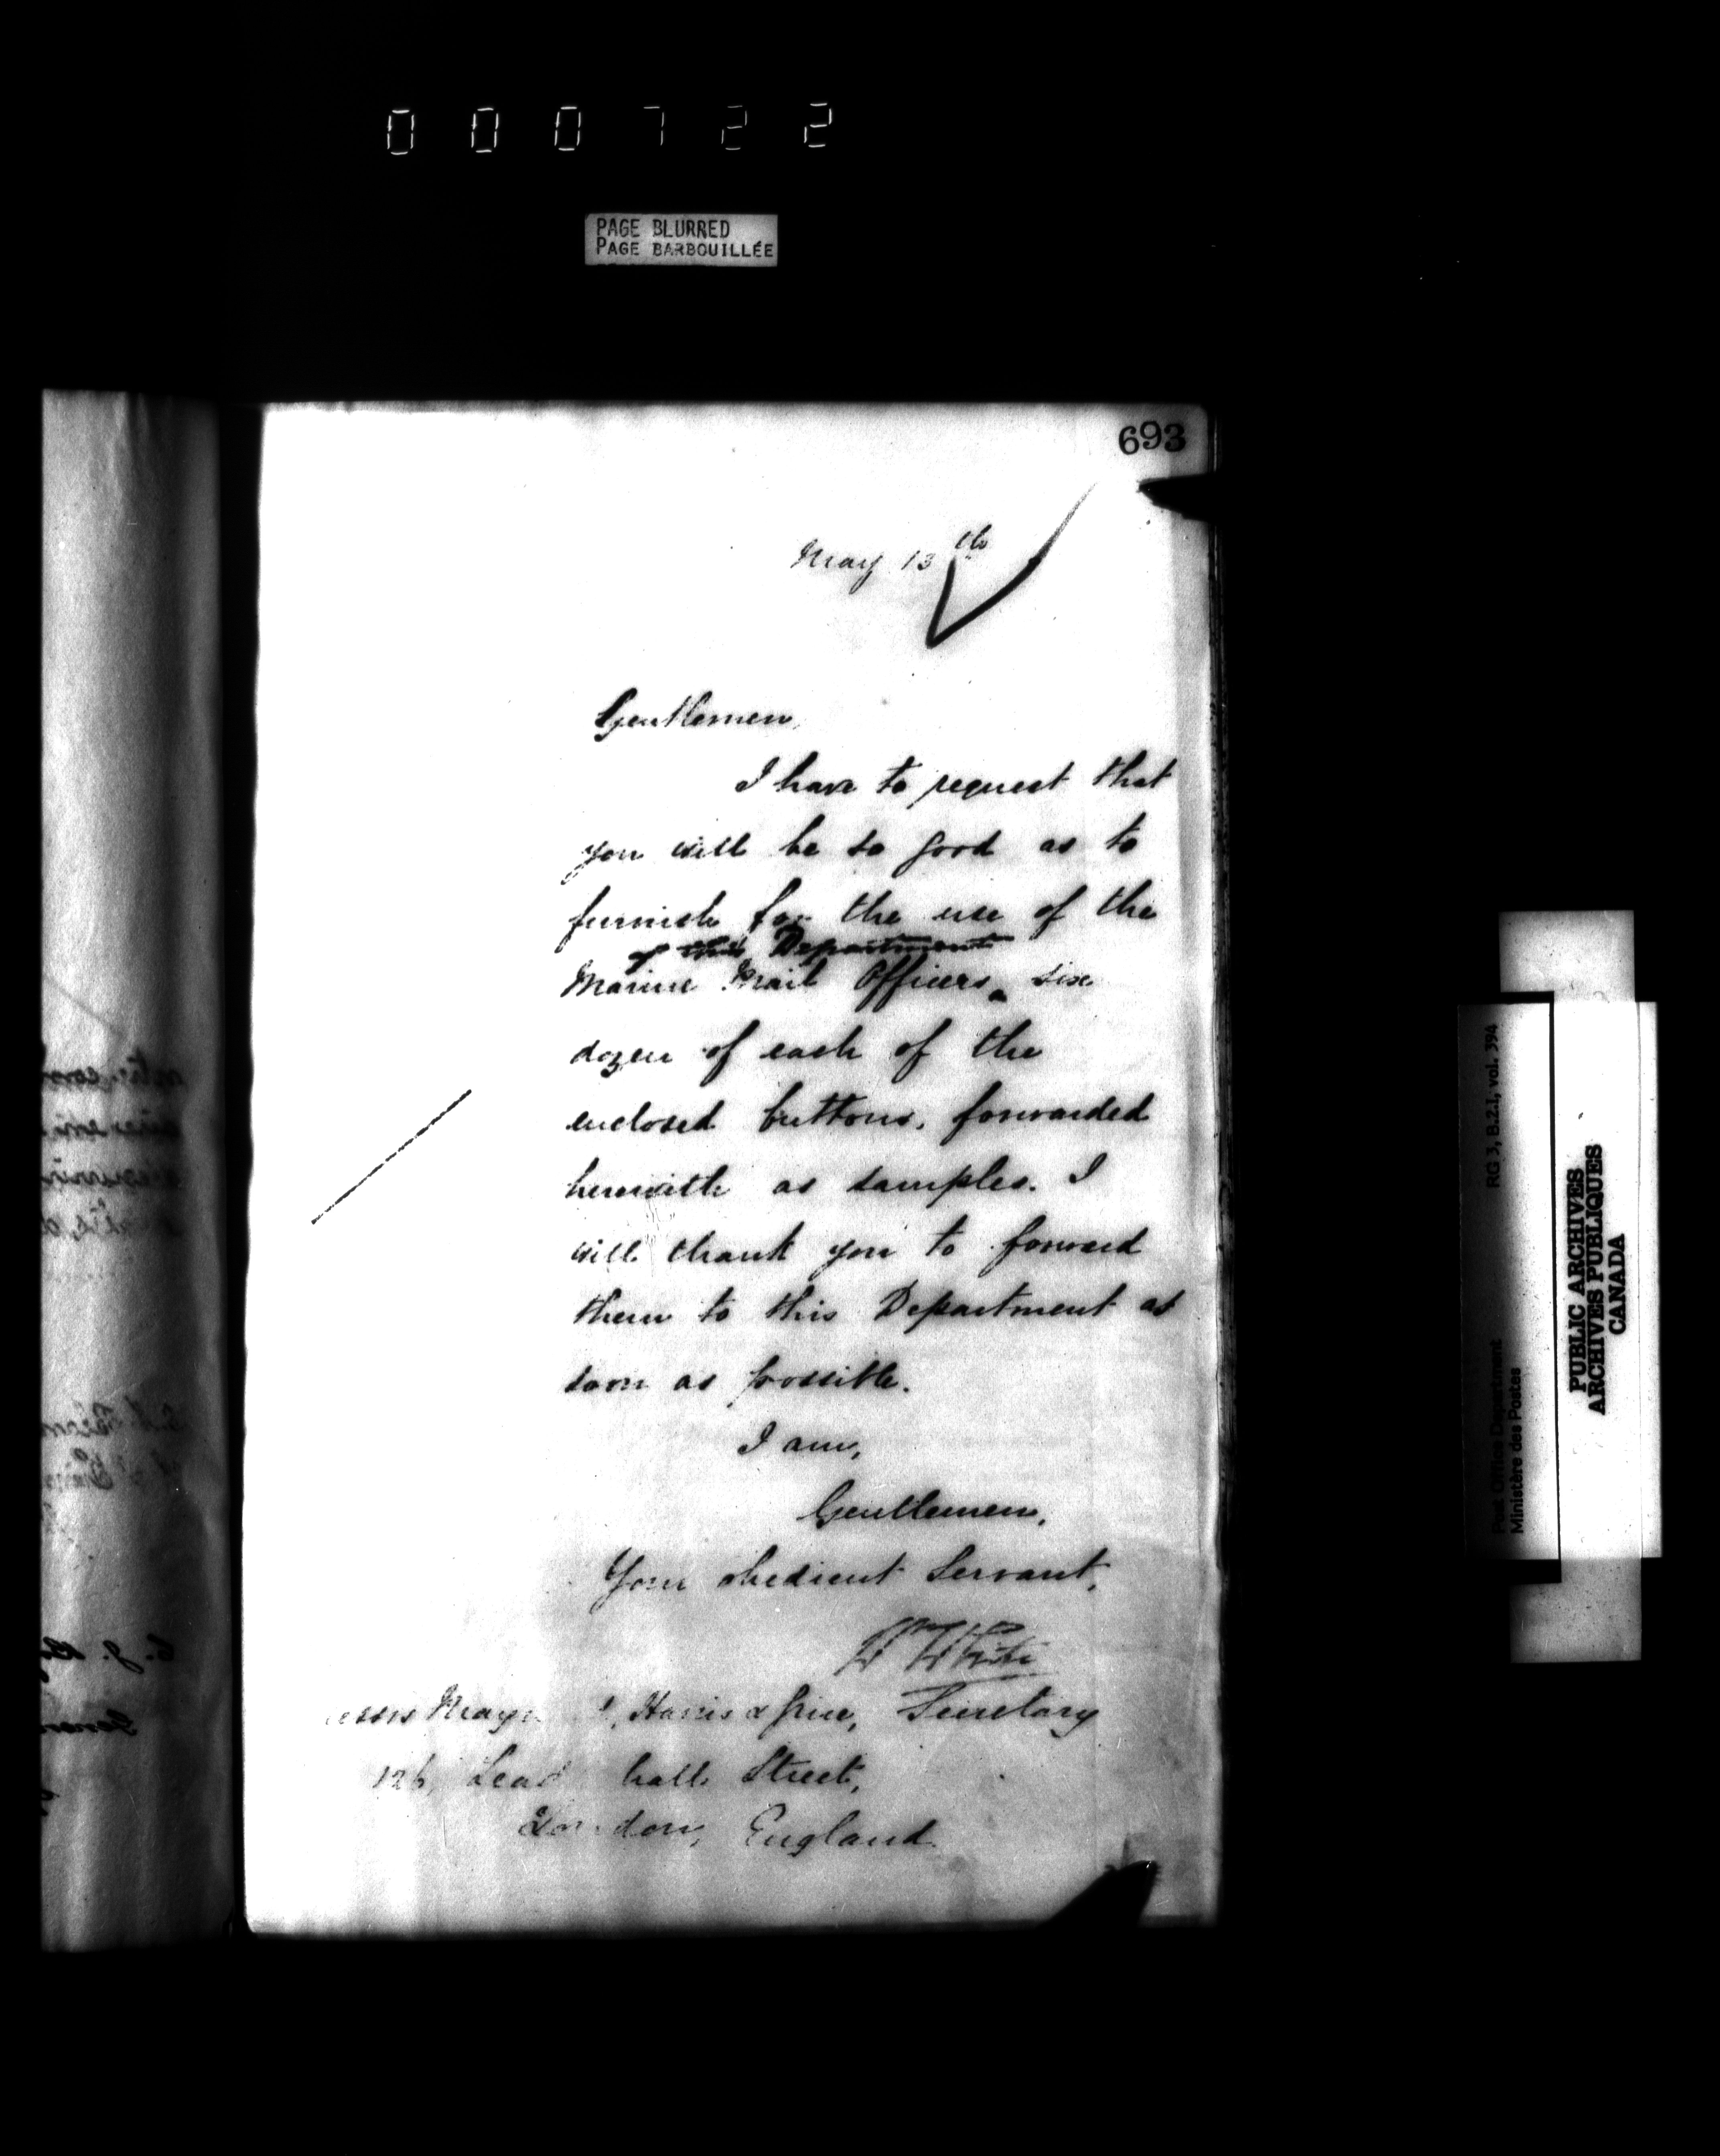 000722
PAGE BLURRED
PAGE BARBOUILLÉE
693
May 13th
Gentlemen,
I have to request that
you will be so good as to
furnish for the use of the
of this Department
Marine Mail Officers six
dozen of each of the
enclosed buttons, forwarded
herewith as samples. I
will thank you to forward
them to this Department as
soon as possible.
I am,
Gentlemen,
Your obedient Servant,
W White
Secretary
Harris & Grice,
126, Lead hall Street,
London, England
RG 3, B.2.1, vol. 394
Post Office Department
Ministère des Postes
PUBLIC ARCHIVES
ARCHIVES PUBLIQUES
CANADA